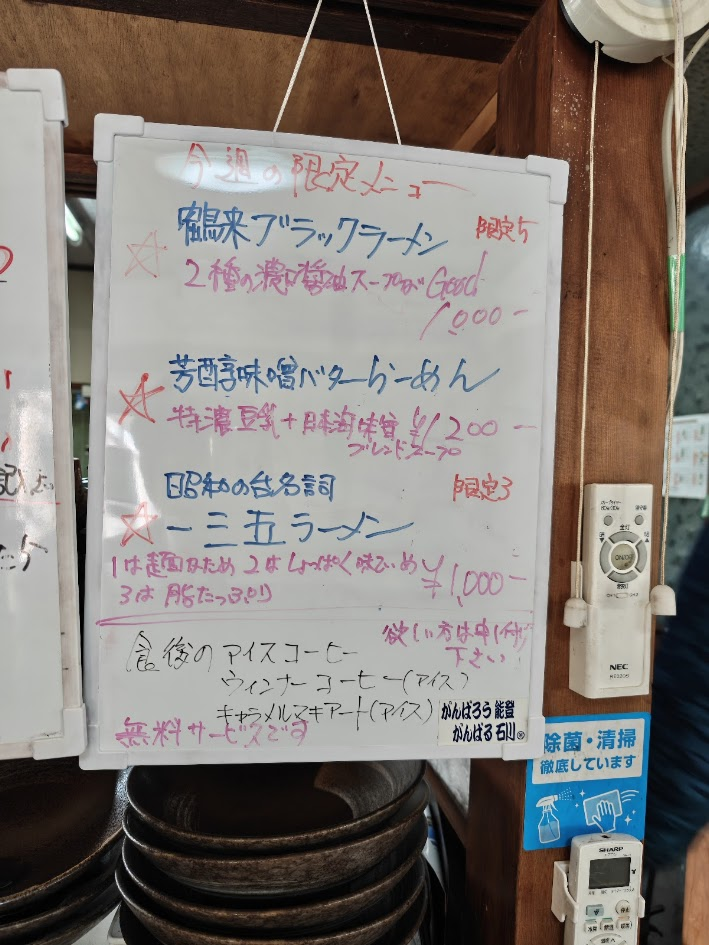 今週の限定メニュー
鶴来ブラックラーメン
限定5
2種の濃口醤油スープがGood
1,000-
芳醇味噌バターらーめん
特濃豆乳+日本海味噌 ¥1200-
ブレンドスープ
昭和の台名詞
限定3
一三五ラーメン
1は麺かため 2はしょっぱく味こいめ
3は脂たっぷり
¥1,000-
食後のアイスコーヒー
欲しい方は申し付け
下さい
ウィンナーコーヒー(アイス)
キャラメルマキアート(アイス)
無料サービスです
がんばろう 能登
がんばる 石川
NEC
除菌・清掃
徹底しています
SHARP